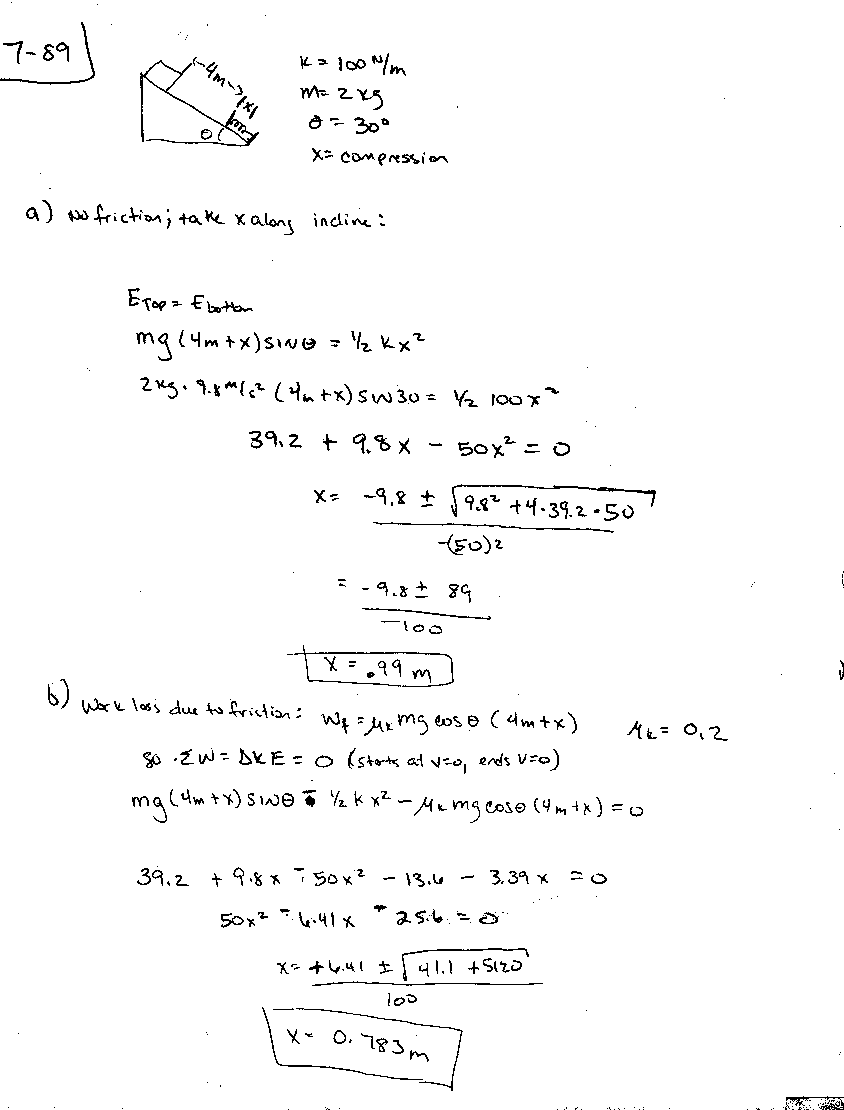 7-89
4m
x
θ
k = 100 N/m
m = 2 kg
θ = 30°
x = compression
a) No friction; take x along incline:
E_Top = E_bottom
mg(4m+x)SINθ = 1/2 kx²
2kg · 9.8 m/s² (4m+x) SIN30 = 1/2 100x²
39.2 + 9.8x - 50x² = 0
x = -9.8 ± √(9.8² + 4·39.2·50) / -(50)2
= -9.8 ± 89 / -100
x = .99 m
b) Work loss due to friction: W_f = μ_k mg cosθ (4m+x) μ_k = 0.2
so ΣW = ΔKE = 0 (starts at v=0, ends v=0)
mg(4m+x)SINθ - 1/2 kx² - μ_k mg cosθ(4m+x) = 0
39.2 + 9.8x - 50x² - 13.6 - 3.39x = 0
50x² - 6.41x - 25.6 = 0
x = +6.41 ± √(41.1 + 5120) / 100
x = 0.783m